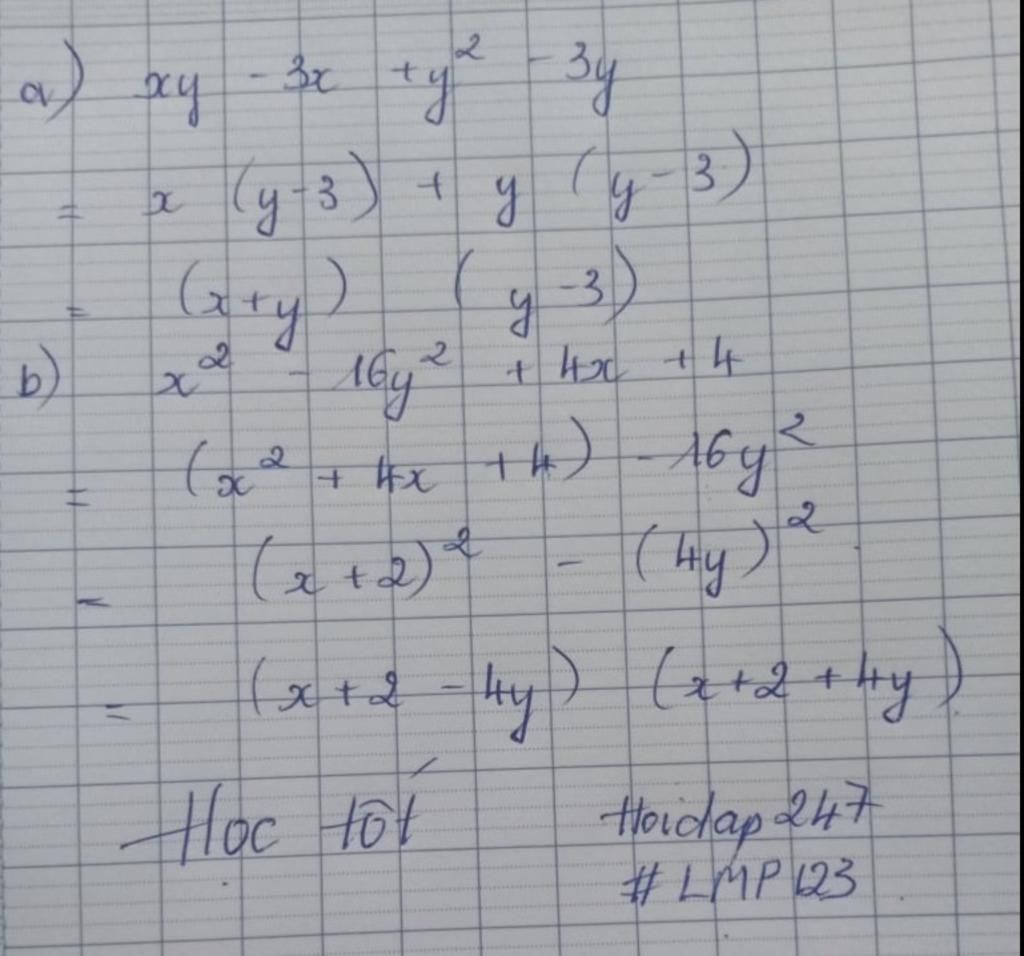 a) xy - 3x + y² - 3y
= x (y - 3) + y (y - 3)
= (x + y) (y - 3)
b) x² - 16y² + 4x + 4
= (x² + 4x + 4) - 16y²
= (x + 2)² - (4y)²
= (x + 2 - 4y) (x + 2 + 4y)
Học tốt
Hoidap247
# LMP123